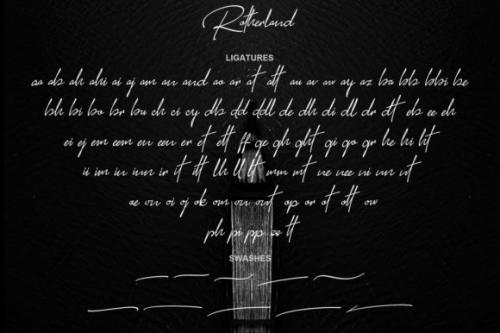 Rotherland
LIGATURES
aa ab ah ahi ai aj am an and ao ar at att au av aw ay az ba be
bh bi bo br bu ch ci cy db dd de dh di dl dr dt eb ee eh
ei ej em eem en een er et ett ff ge gh ght gi go gr he hi ht
ii im in ir it itt lh ll lt mm mt ne nee ni nn nt
oi oj ok om op or ot ott ow
ph pi pp tt
SWASHES